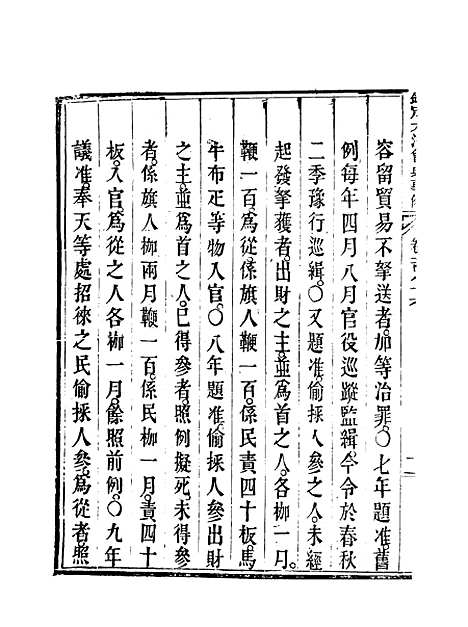 欽定大清會典事例
容留貿易不拏送者。加等治罪。○七年題准舊
例每年四月八月官役巡蹤監緝。今令於春秋
二季豫行巡緝。○又題准偷採人參之人。未經
起發拏獲者。出財之主並爲首之人。各枷一月。
鞭一百。爲從係旗人鞭一百。係民責四十板。馬
牛布疋等物入官。○八年題准偷採人參出財
之主。並爲首之人。已得參者。照例擬死。未得參
者。係旗人枷兩月鞭一百。係民枷一月。責四十
板。入官。爲從之人各枷一月。餘照前例。○九年
議准。奉天等處招徠之民偷採人參。爲從者。照